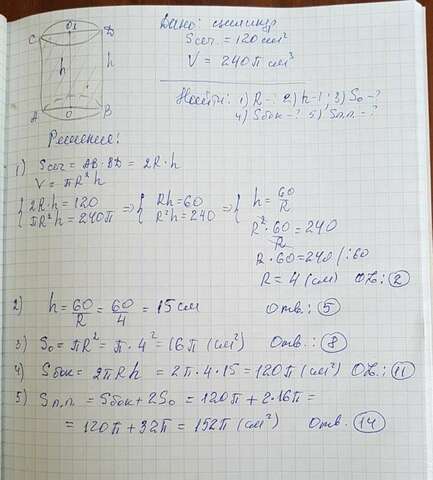 O₁
C D
h h
A O B
Дано: цилиндр
Sсеч. = 120 см²
V = 240π см³
Найти: 1) R-? 2) h-? 3) S₀-?
4) Sбок-? 5) Sп.п.=?
Решение:
1) Sсеч = AB·BD = 2R·h
V = πR²h
{2R·h = 120 => {Rh = 60 => {h = 60/R
πR²h = 240π R²h = 240
R²·60/R = 240
R·60 = 240 /:60
R = 4 (см) Отв.: 2
2) h = 60/R = 60/4 = 15 см Отв.: 5
3) S₀ = πR² = π·4² = 16π (см²) Отв.: 8
4) Sбок = 2πRh = 2π·4·15 = 120π (см²) Отв.: 11
5) Sп.п. = Sбок + 2S₀ = 120π + 2·16π =
= 120π + 32π = 152π (см²) Отв. 14